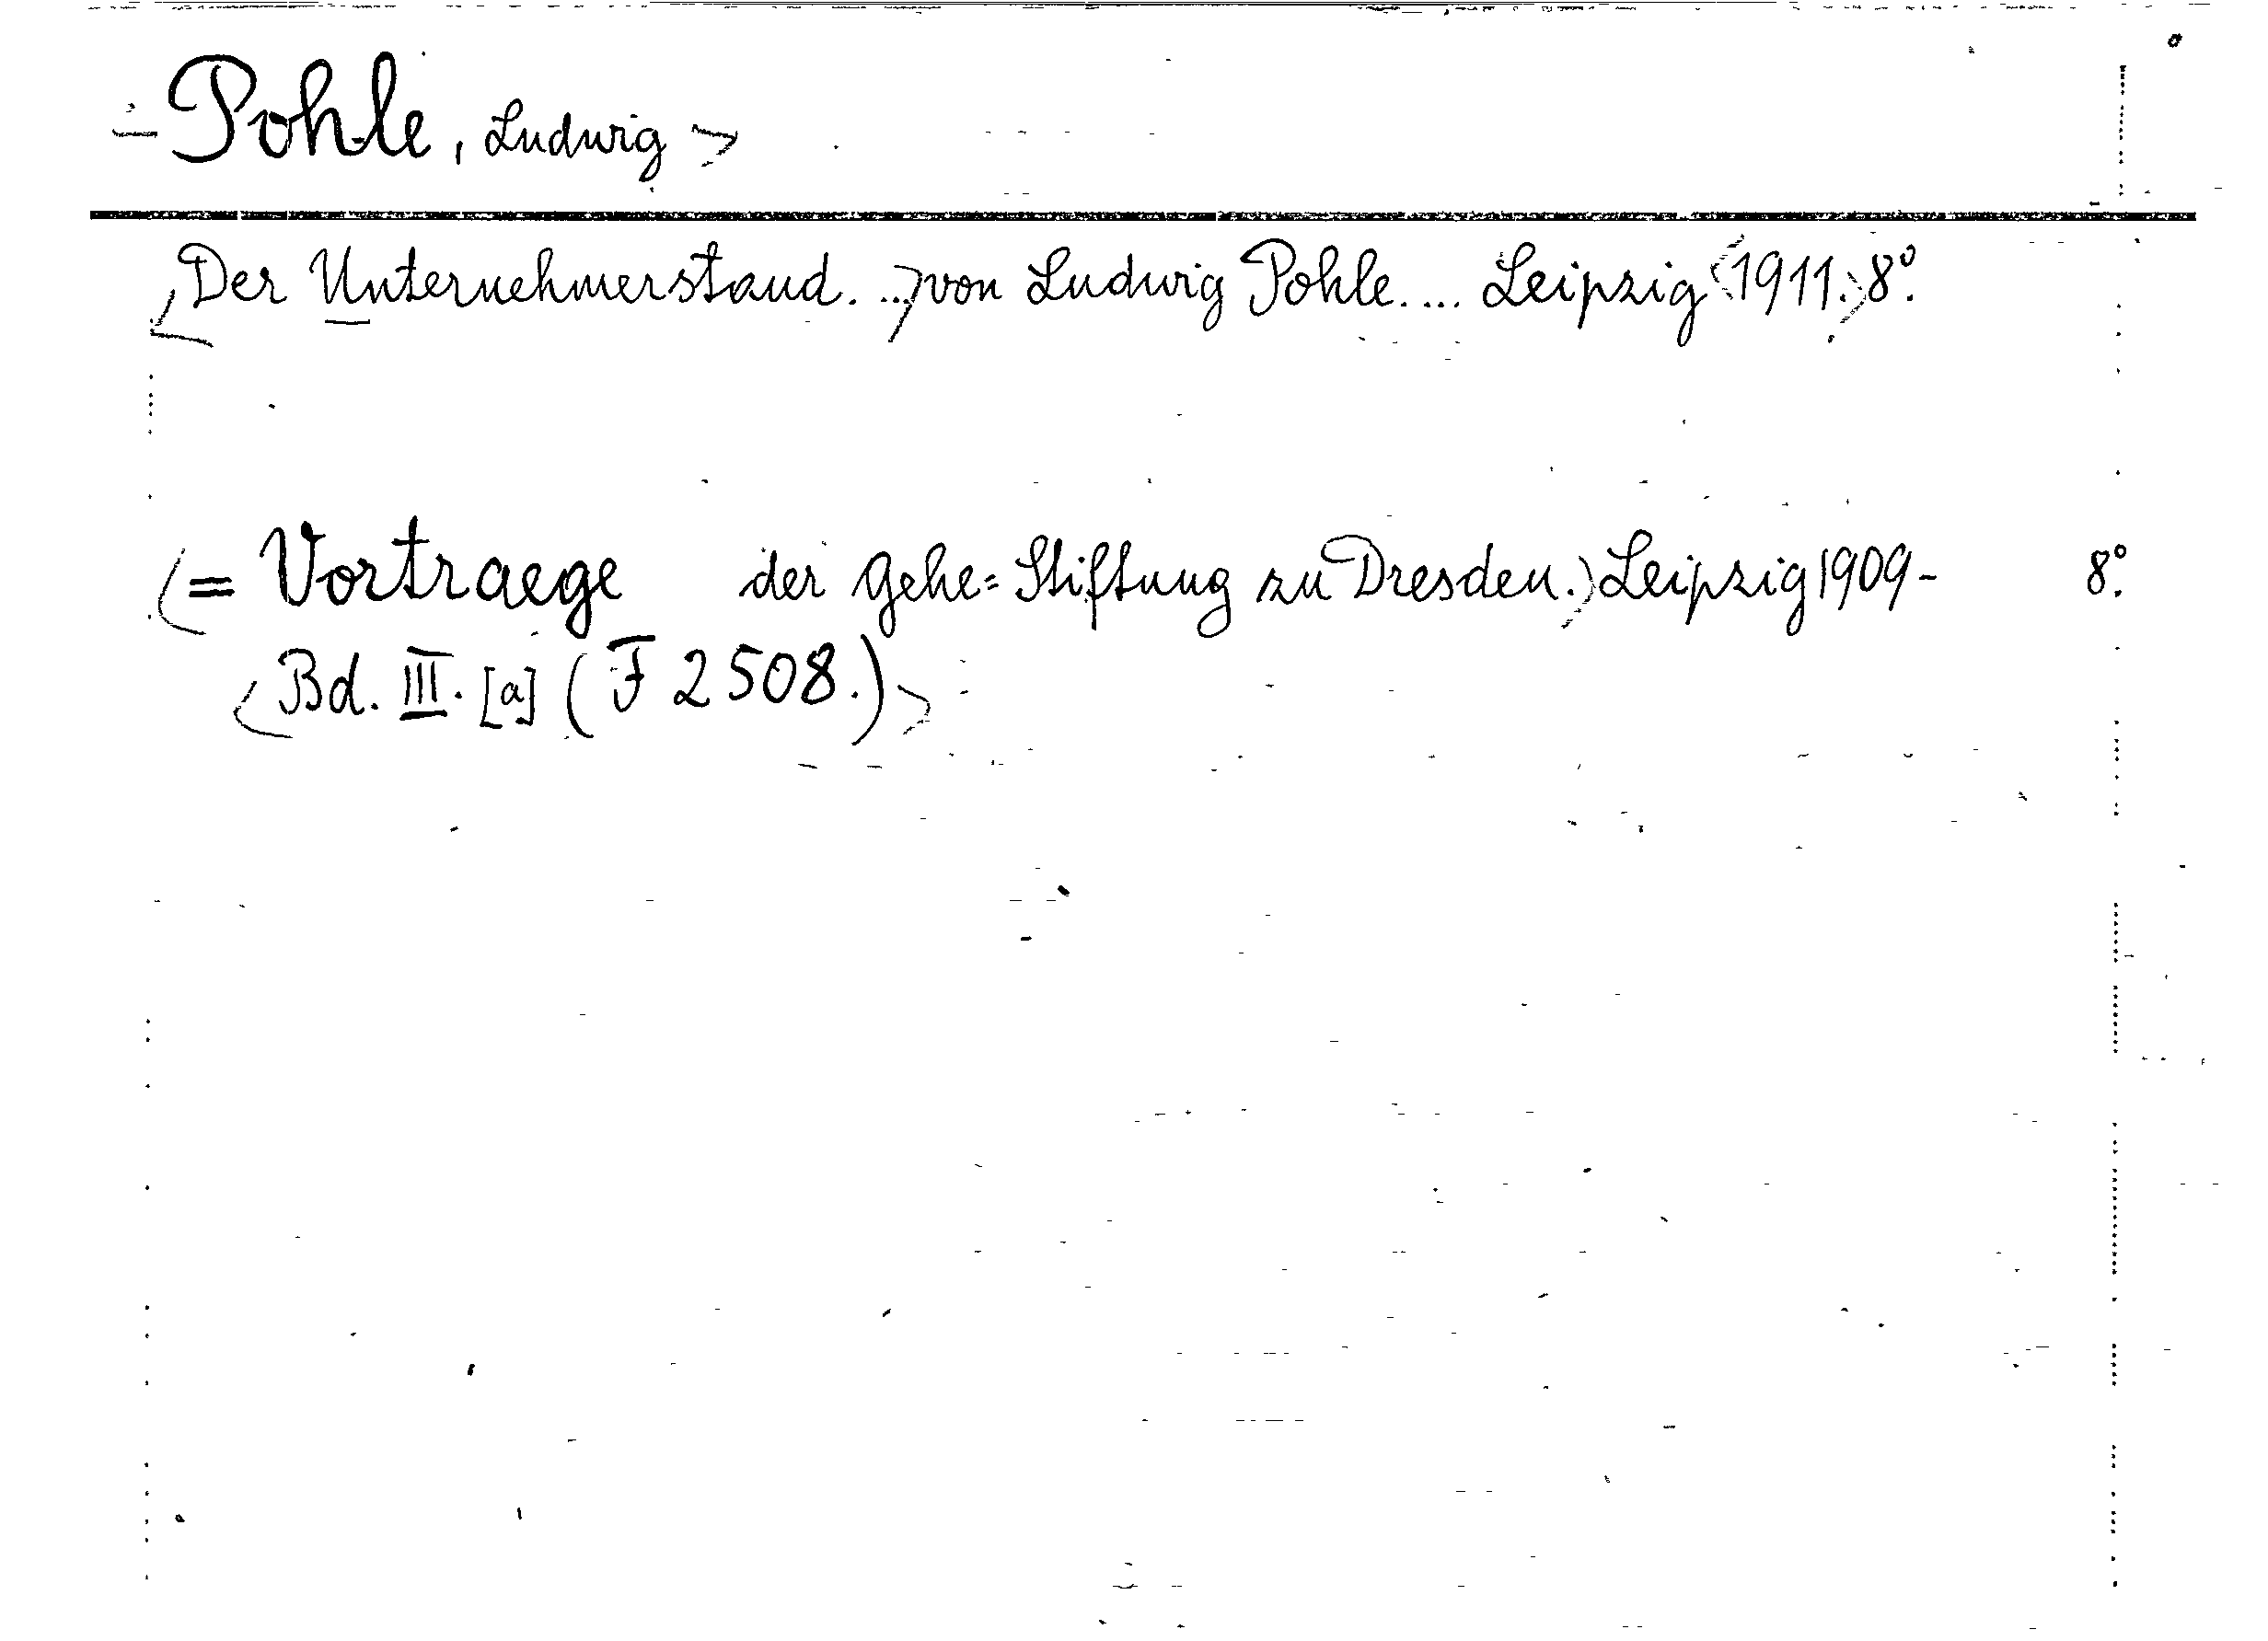 Pohle, Ludwig
Der Unternehmerstand. ... von Ludwig Pohle. ... Leipzig 1911. 8°.
= Vortraege der Gehe=Stiftung zu Dresden. Leipzig 1909- 8°.
Bd. III. [a] (F 2508.)